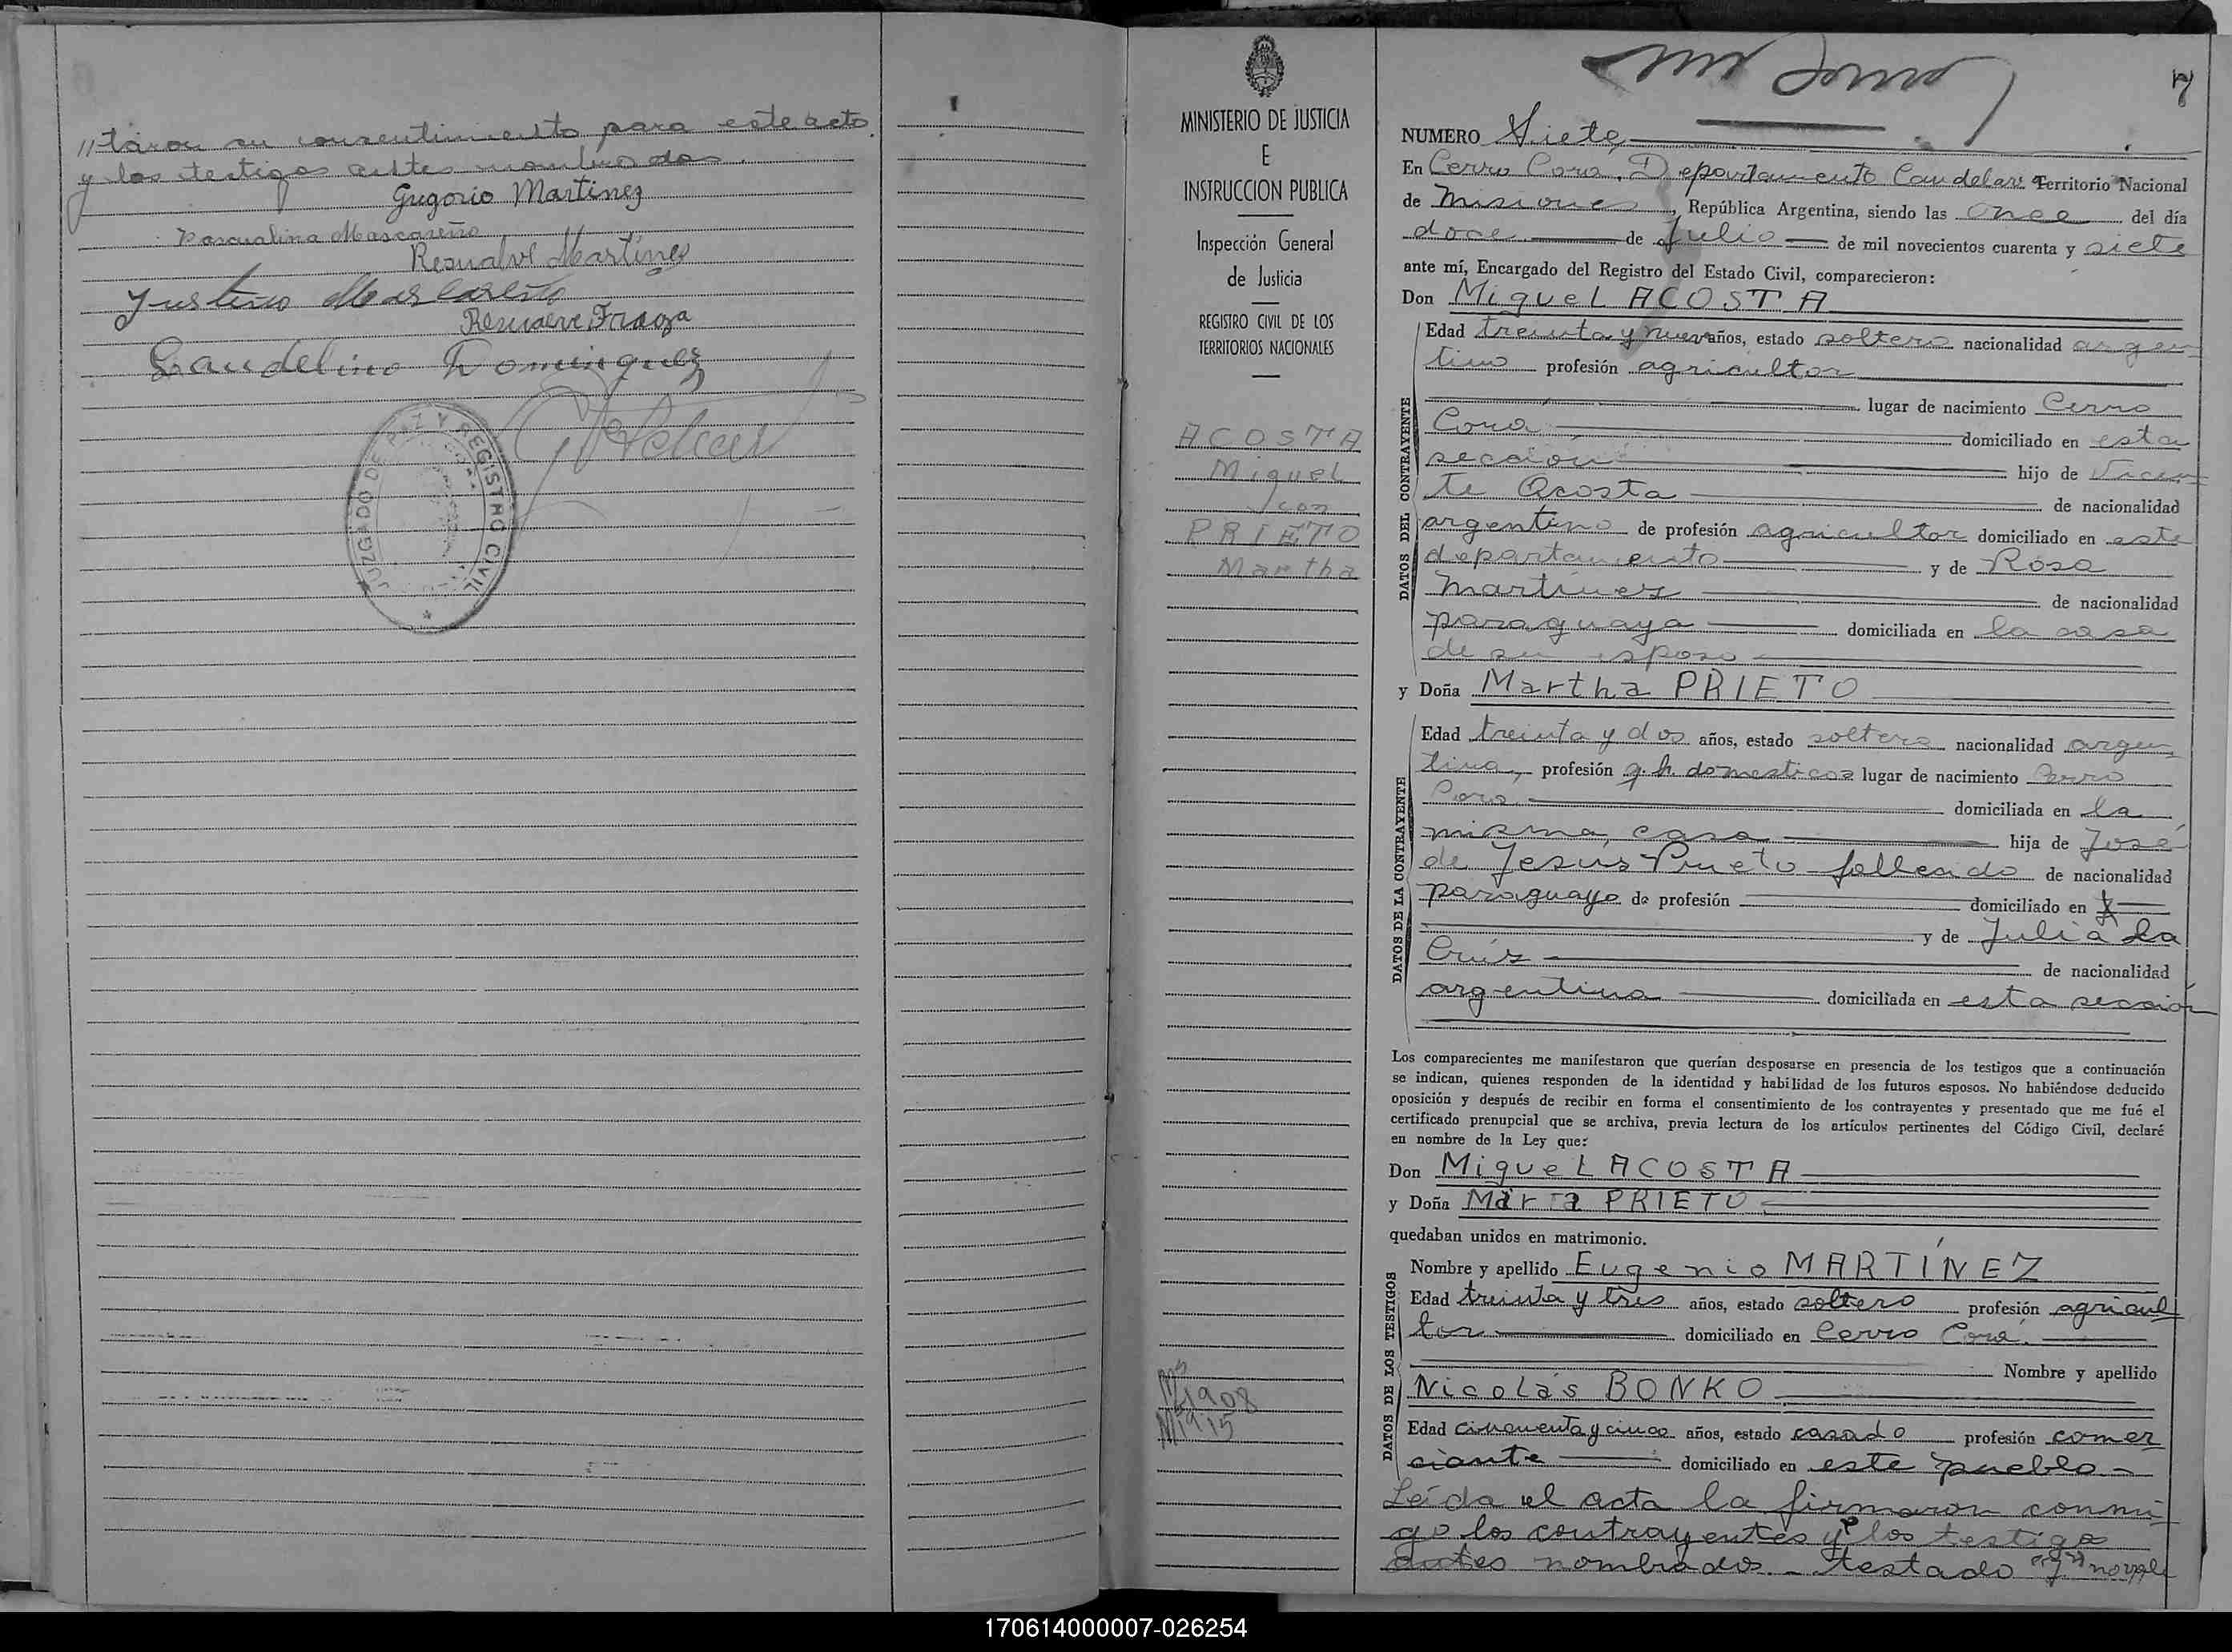 //taron su consentimiento para este acto
y los testigos antes nombrados.
Gregorio Martinez
Pascualina Mascareño
Martínez
Justino Mascareño
Fraga
Gaudelino Dominguez
JUZGADO DE PAZ Y REGISTRO CIVIL
MINISTERIO DE JUSTICIA
E
INSTRUCCION PUBLICA
Inspección General
de Justicia
REGISTRO CIVIL DE LOS
TERRITORIOS NACIONALES
ACOSTA
Miguel
con
PRIETO
Martha
1908
1915
7
NUMERO Siete
En Cerro Corá, Departamento Candelaria Territorio Nacional
de Misiones, República Argentina, siendo las once del día
doce de Julio de mil novecientos cuarenta y siete
ante mí, Encargado del Registro del Estado Civil, comparecieron:
Don Miguel ACOSTA
DATOS DEL CONTRAYENTE
Edad treinta y nueve años, estado soltero nacionalidad argen=
tino profesión agricultor
lugar de nacimiento Cerro
Corá domiciliado en esta
sección hijo de Vicen=
te Acosta de nacionalidad
argentino de profesión agricultor domiciliado en este
departamento y de Rosa
Martinez de nacionalidad
paraguaya domiciliada en la casa
de su esposo
y Doña Martha PRIETO
DATOS DE LA CONTRAYENTE
Edad treinta y dos años, estado soltera nacionalidad argen=
tina, profesión q. h. domesticos lugar de nacimiento Cerro
Corá domiciliada en la
misma casa hija de José
de Jesús Prieto fallecido de nacionalidad
paraguayo de profesión domiciliado en
y de Julia La
Crúz de nacionalidad
argentina domiciliada en esta sección
Los comparecientes me manifestaron que querían desposarse en presencia de los testigos que a continuación
se indican, quienes responden de la identidad y habilidad de los futuros esposos. No habiéndose deducido
oposición y después de recibir en forma el consentimiento de los contrayentes y presentado que me fué el
certificado prenupcial que se archiva, previa lectura de los artículos pertinentes del Código Civil, declaré
en nombre de la Ley que:
Don Miguel ACOSTA
y Doña Marta PRIETO
quedaban unidos en matrimonio.
DATOS DE LOS TESTIGOS
Nombre y apellido Eugenio MARTÍNEZ
Edad treinta y tres años, estado soltero profesión agricul
tor domiciliado en Cerro Corá.
Nombre y apellido
Nicolás BONKO
Edad cincuenta y cinco años, estado casado profesión comer
ciante domiciliado en este pueblo-
Leída el acta la firmaron conmi=
go los contrayentes y los testigos
antes nombrados - testado "y" no vale
170614000007-026254